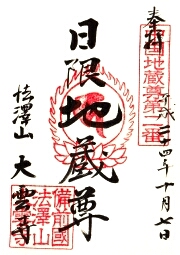 奉拝
国地蔵尊第
平成二十四年十月七日
日限地蔵尊
法澤山
大雲寺
備前國
法澤山
大雲寺